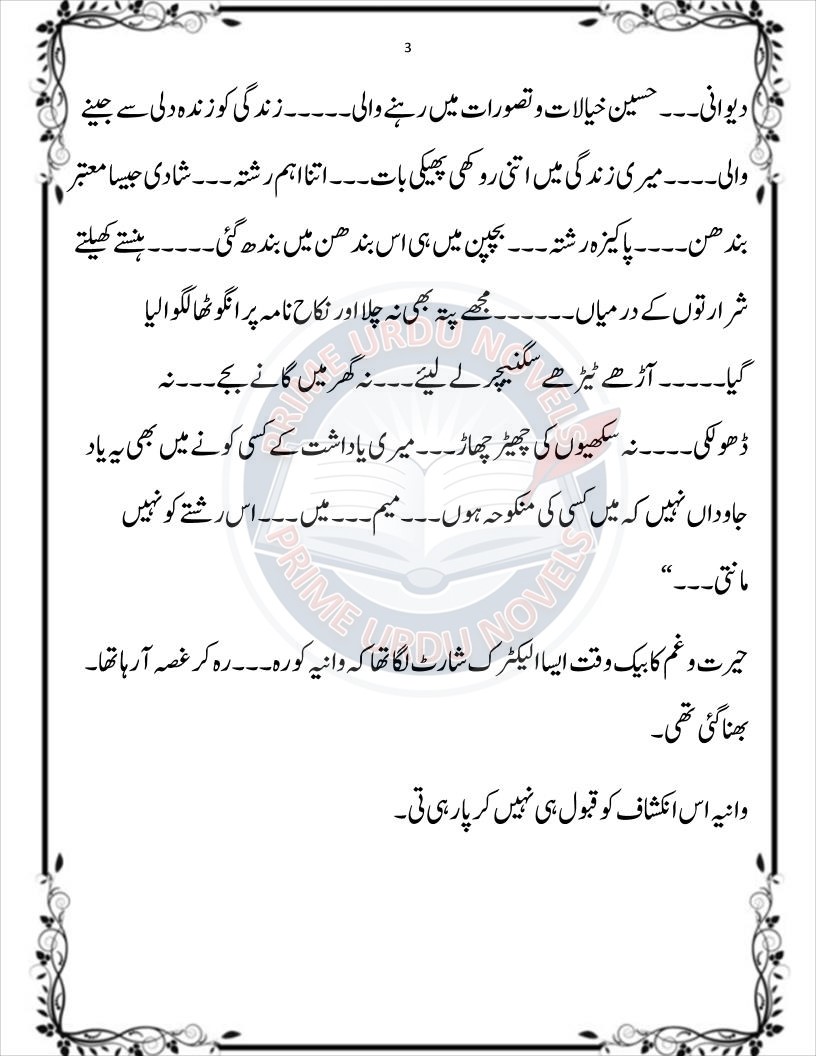 3
دیوانی۔۔۔ حسین خیالات و تصورات میں رہنے والی۔۔۔۔۔زندگی کو زندہ دلی سے جینے
والی۔۔۔۔میری زندگی میں اتنی روکھی پھیکی بات۔۔۔اتنا اہم رشتہ۔۔۔شادی جیسا معتبر
بندھن۔۔۔۔پاکیزہ رشتہ۔۔۔ بچپن میں ہی اس بندھن میں بندھ گئی۔۔۔۔۔ہنستے کھیلتے
شرارتوں کے درمیاں۔۔۔۔۔۔مجھے پتہ بھی نہ چلا اور نکاح نامہ پر انگوٹھا لگوا لیا
گیا۔۔۔۔۔ آڑھے ٹیڑھے سگنیچر لے لیئے۔۔۔نہ گھر میں گانے بجے۔۔۔نہ
ڈھولکی۔۔۔۔نہ سکھیوں کی چھیڑ چھاڑ۔۔۔میری یاداشت کے کسی کونے میں بھی یہ یاد
جاوداں نہیں کہ میں کسی کی منکوحہ ہوں۔۔۔میم۔۔۔میں۔۔۔اس رشتے کو نہیں
مانتی۔۔۔“
حیرت و غم کا بیک وقت ایسا الیکٹرک شارٹ لگا تھا کہ وانیہ کو رہ۔۔۔رہ کر غصہ آ رہا تھا۔
بھنا گئی تھی۔
وانیہ اس انکشاف کو قبول ہی نہیں کر پا رہی تی۔
PRIME URDU NOVELS
PRIME URDU NOVELS